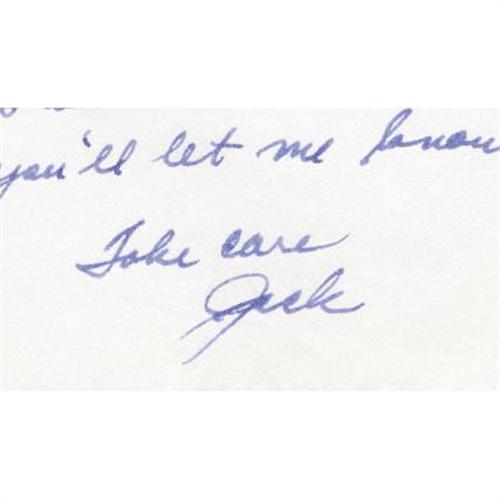 you'll let me know
Take care
Jack